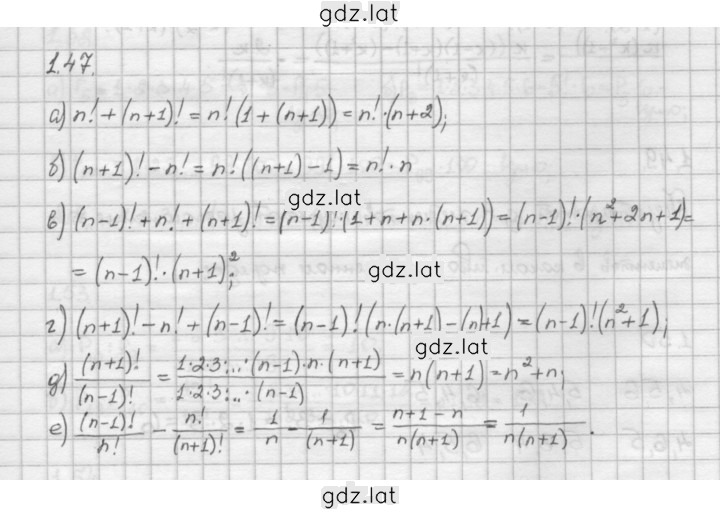 gdz.lat
1.47.
а) n! + (n+1)! = n! (1 + (n+1)) = n! · (n+2);
б) (n+1)! - n! = n! ((n+1) - 1) = n! · n
gdz.lat
в) (n-1)! + n! + (n+1)! = (n-1)! · (1 + n + n · (n+1)) = (n-1)! · (n² + 2n + 1) =
= (n-1)! · (n+1)²;
gdz.lat
г) (n+1)! - n! + (n-1)! = (n-1)! (n · (n+1) - (n) + 1) = (n-1)! (n² + 1);
gdz.lat
д) (n+1)! / (n-1)! = 1·2·3·...·(n-1)·n·(n+1) / 1·2·3·...·(n-1) = n(n+1) = n² + n;
е) (n-1)! / n! - n! / (n+1)! = 1 / n - 1 / (n+1) = n+1-n / n(n+1) = 1 / n(n+1).
gdz.lat